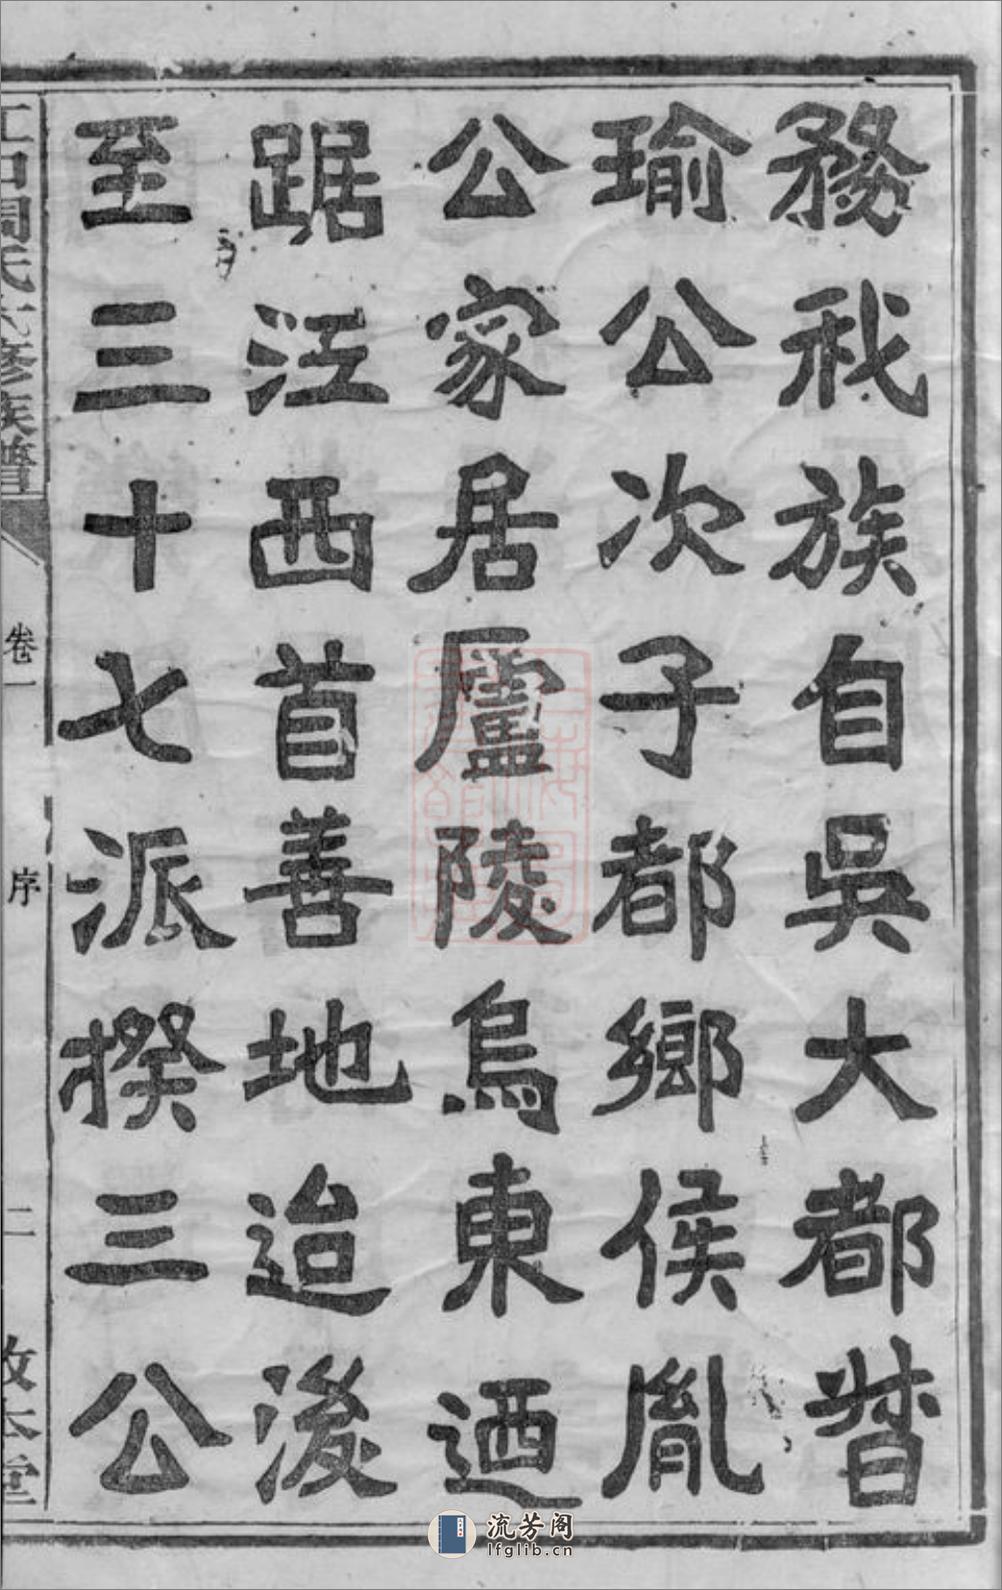 務我族自吳大都督
瑜公次子都鄉侯胤
公家居廬陵烏東迺
踞江西首善地迨後
至三十七派揆三公
江口周氏六修族譜
卷一
序
二
敦本堂
流芳阁
lfglib.cn